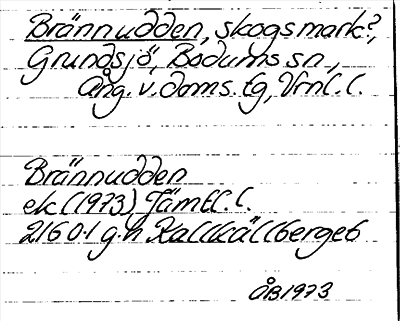 Brännudden, skogsmark?,
Grundsjö, Bodums sn,
Ång. v. doms. tg, Vrnl. l.
Brännudden
ek (1973), Jämtl. l.
2160.1 g.h Kallkällberget
ÅB 1973